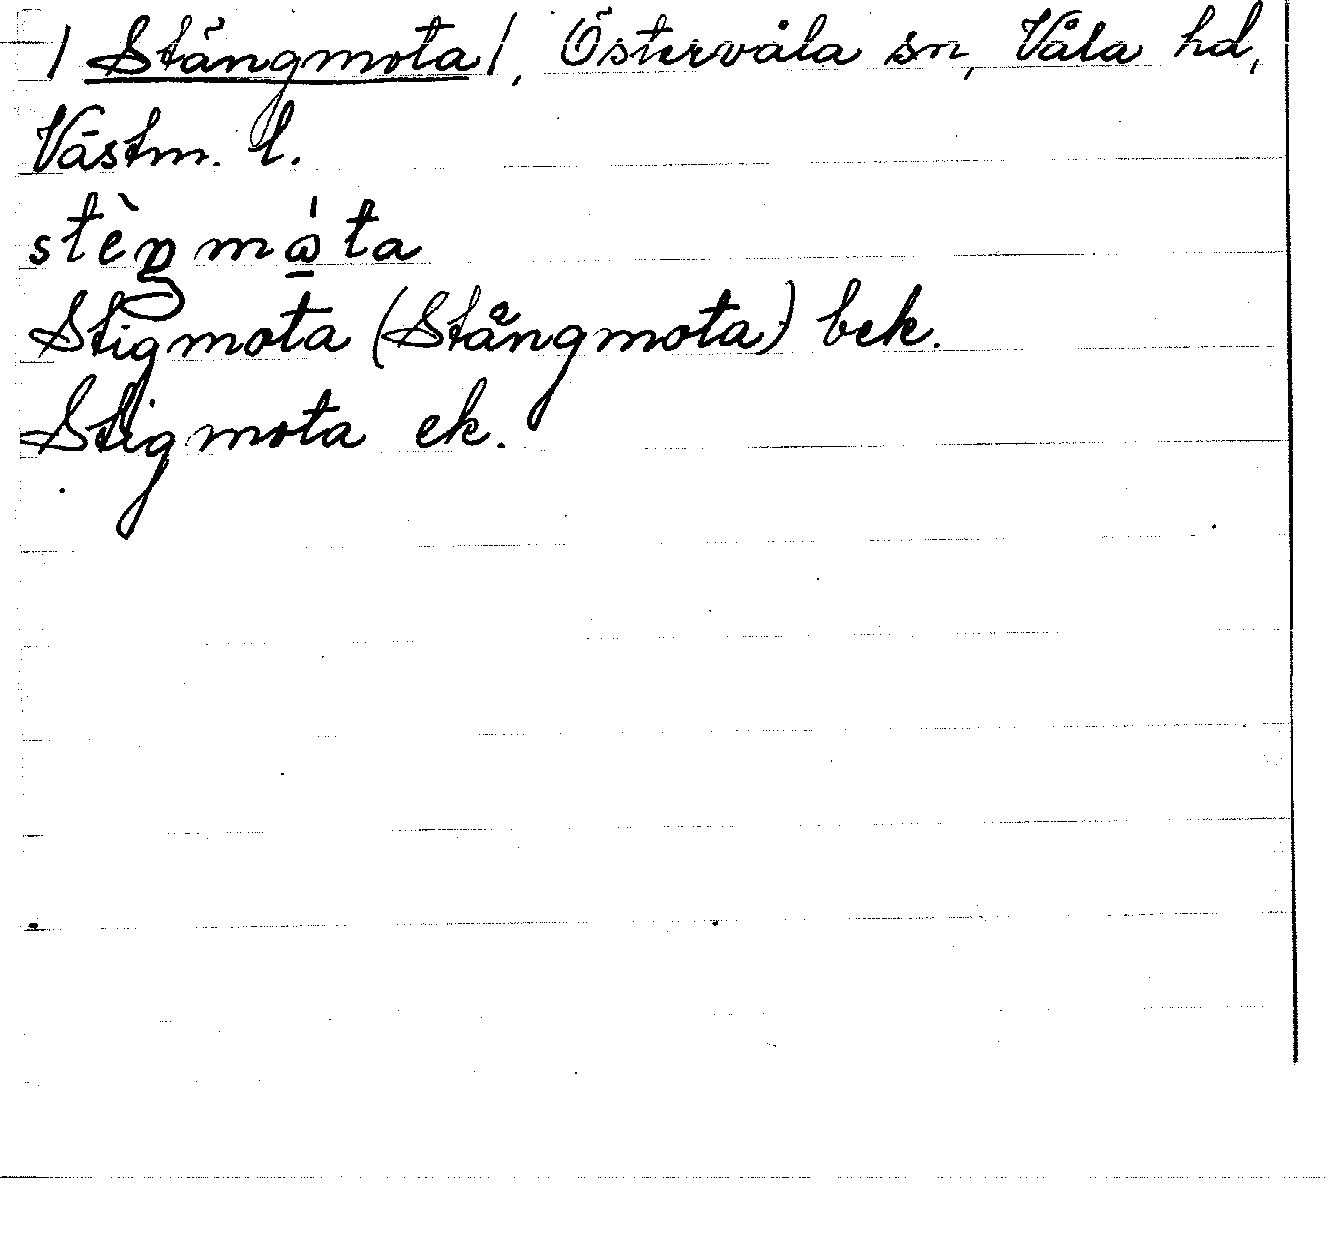 / Stängmota /, Östervåla sn, Våla hd,
Västm. l.
stèŋmɷ̀ta
Stigmota (Stångmota) bek.
Stigmota ek.